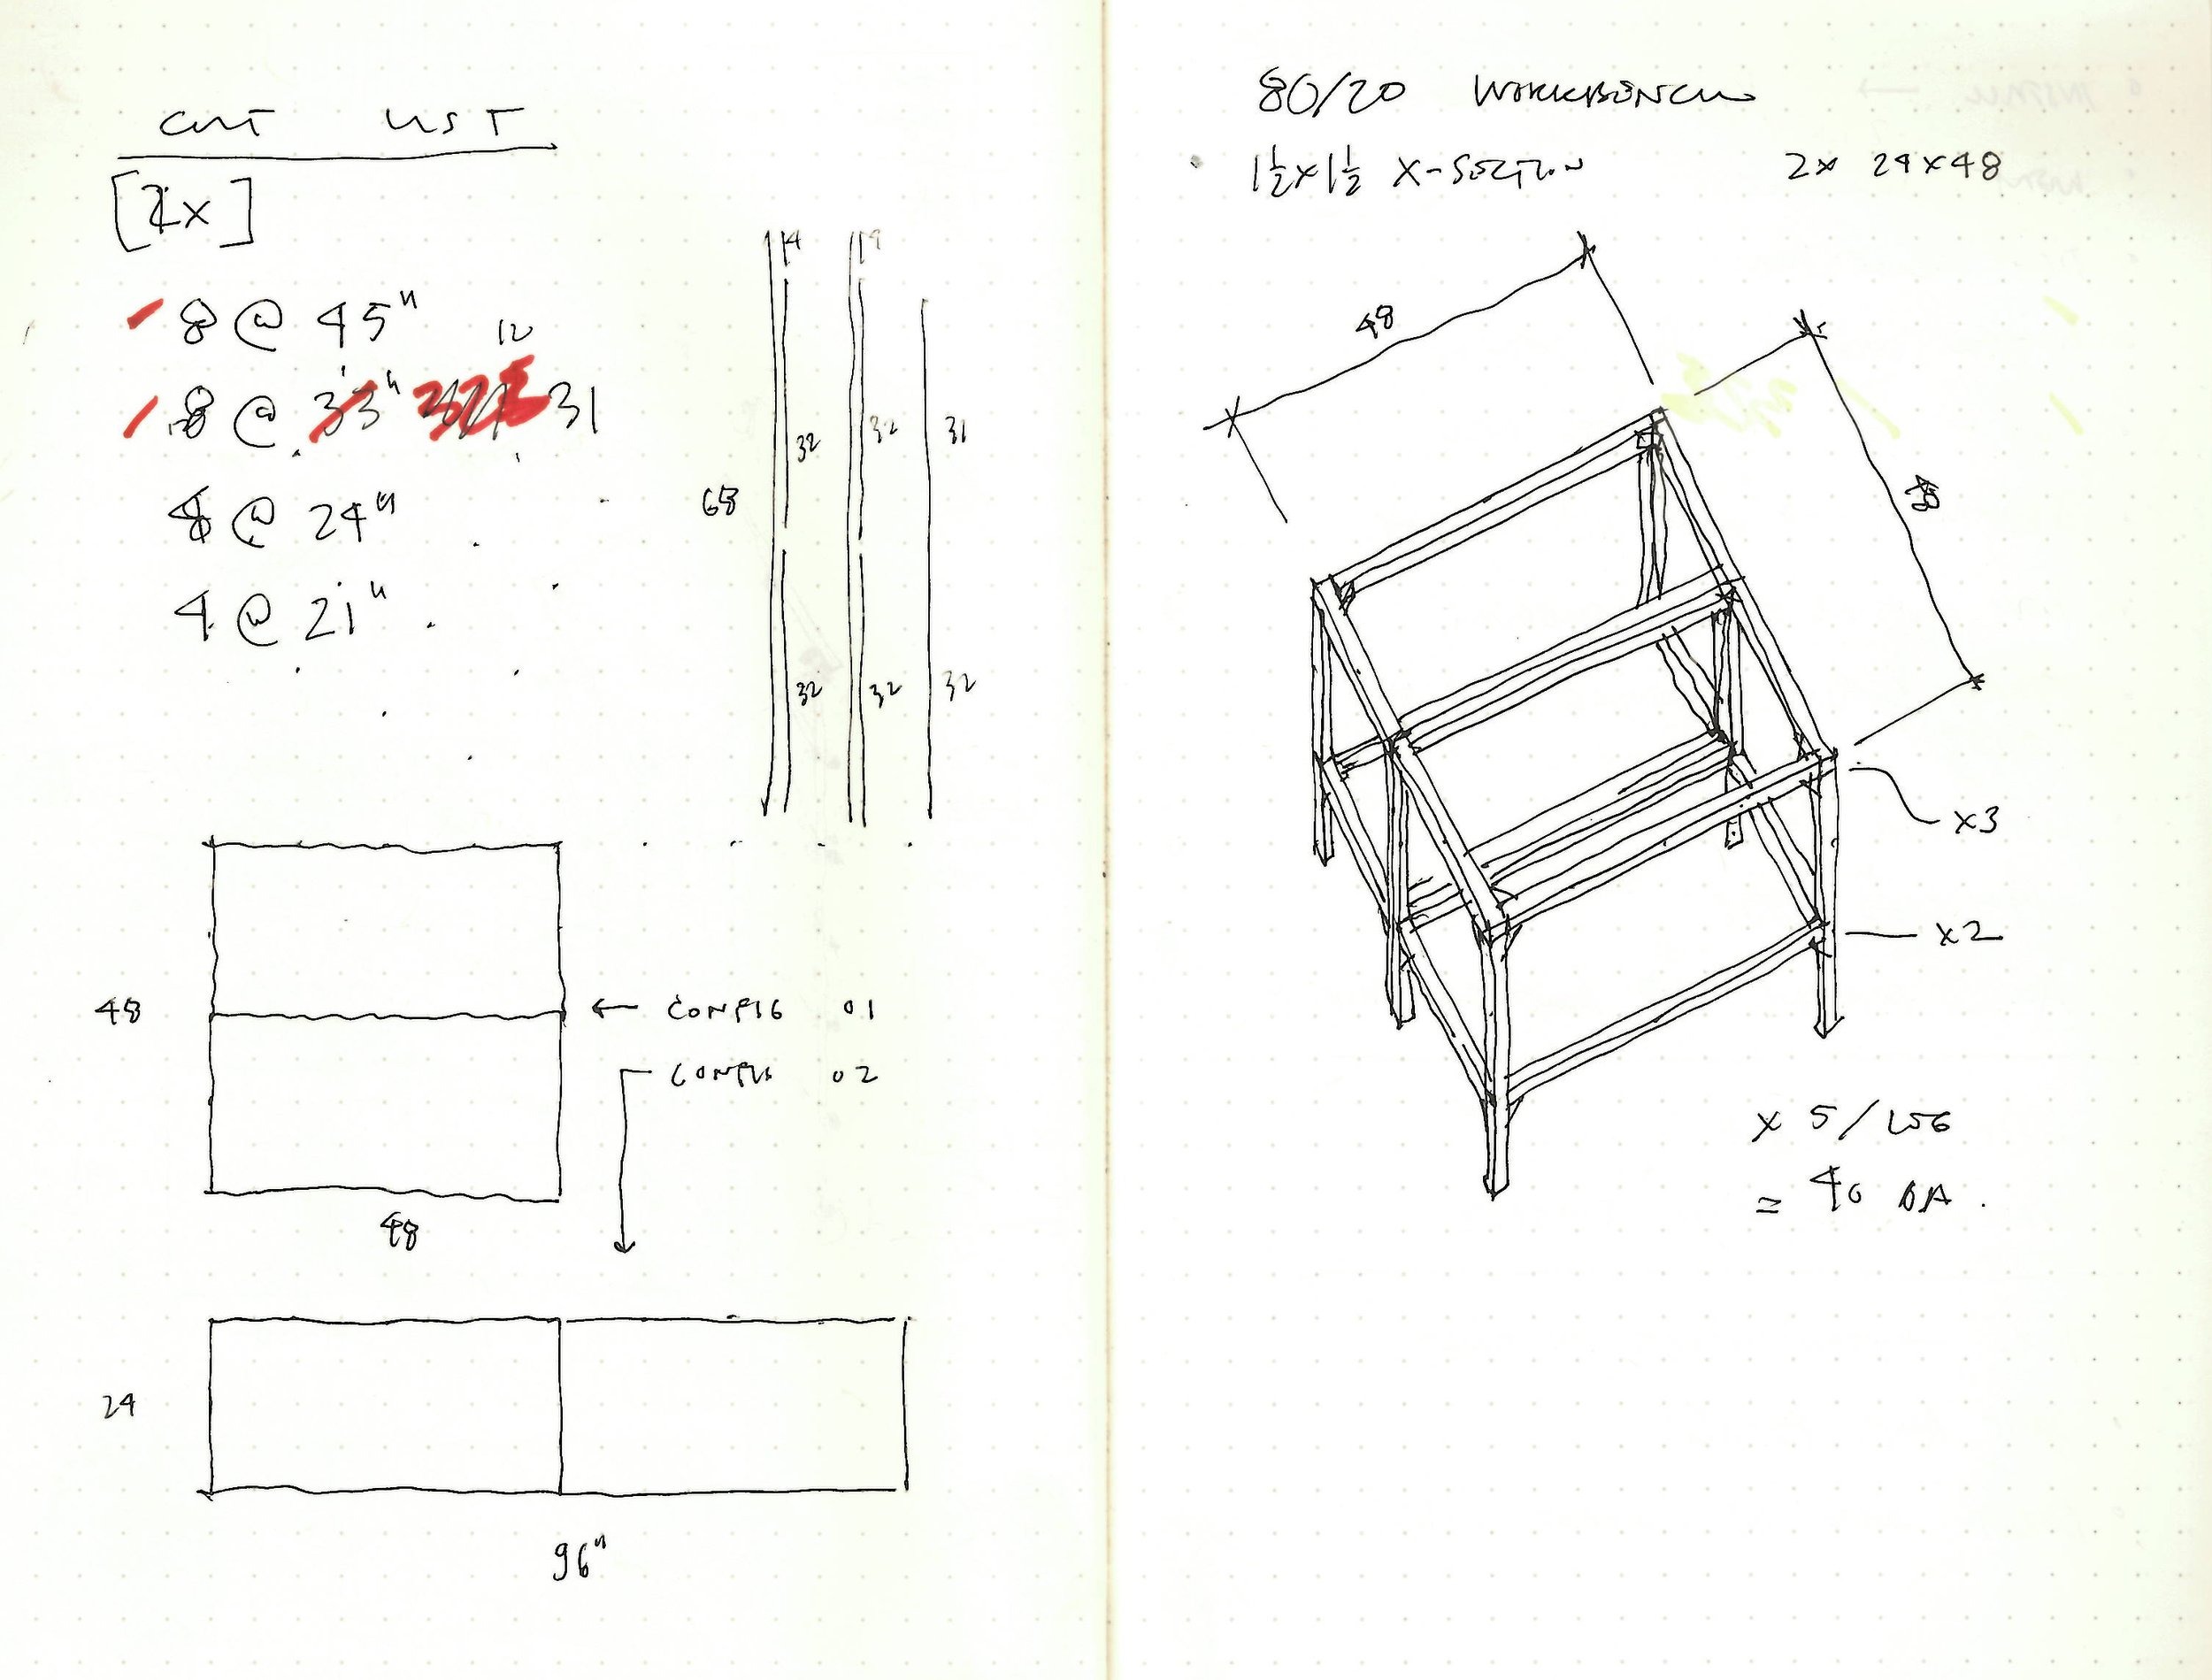 CUT LIST
[2x]
8 @ 45"
10
8 @ 33" 31
8 @ 24"
4 @ 21"
4 9
32 32 31
68
32 32 32
48
← CONFIG 01
CONFIG 02
48
24
96"
80/20 WORKBENCH
1½x1½ X-SECTION 2x 24x48
48
48
x3
x2
x 5/LEG
= 40 EA.